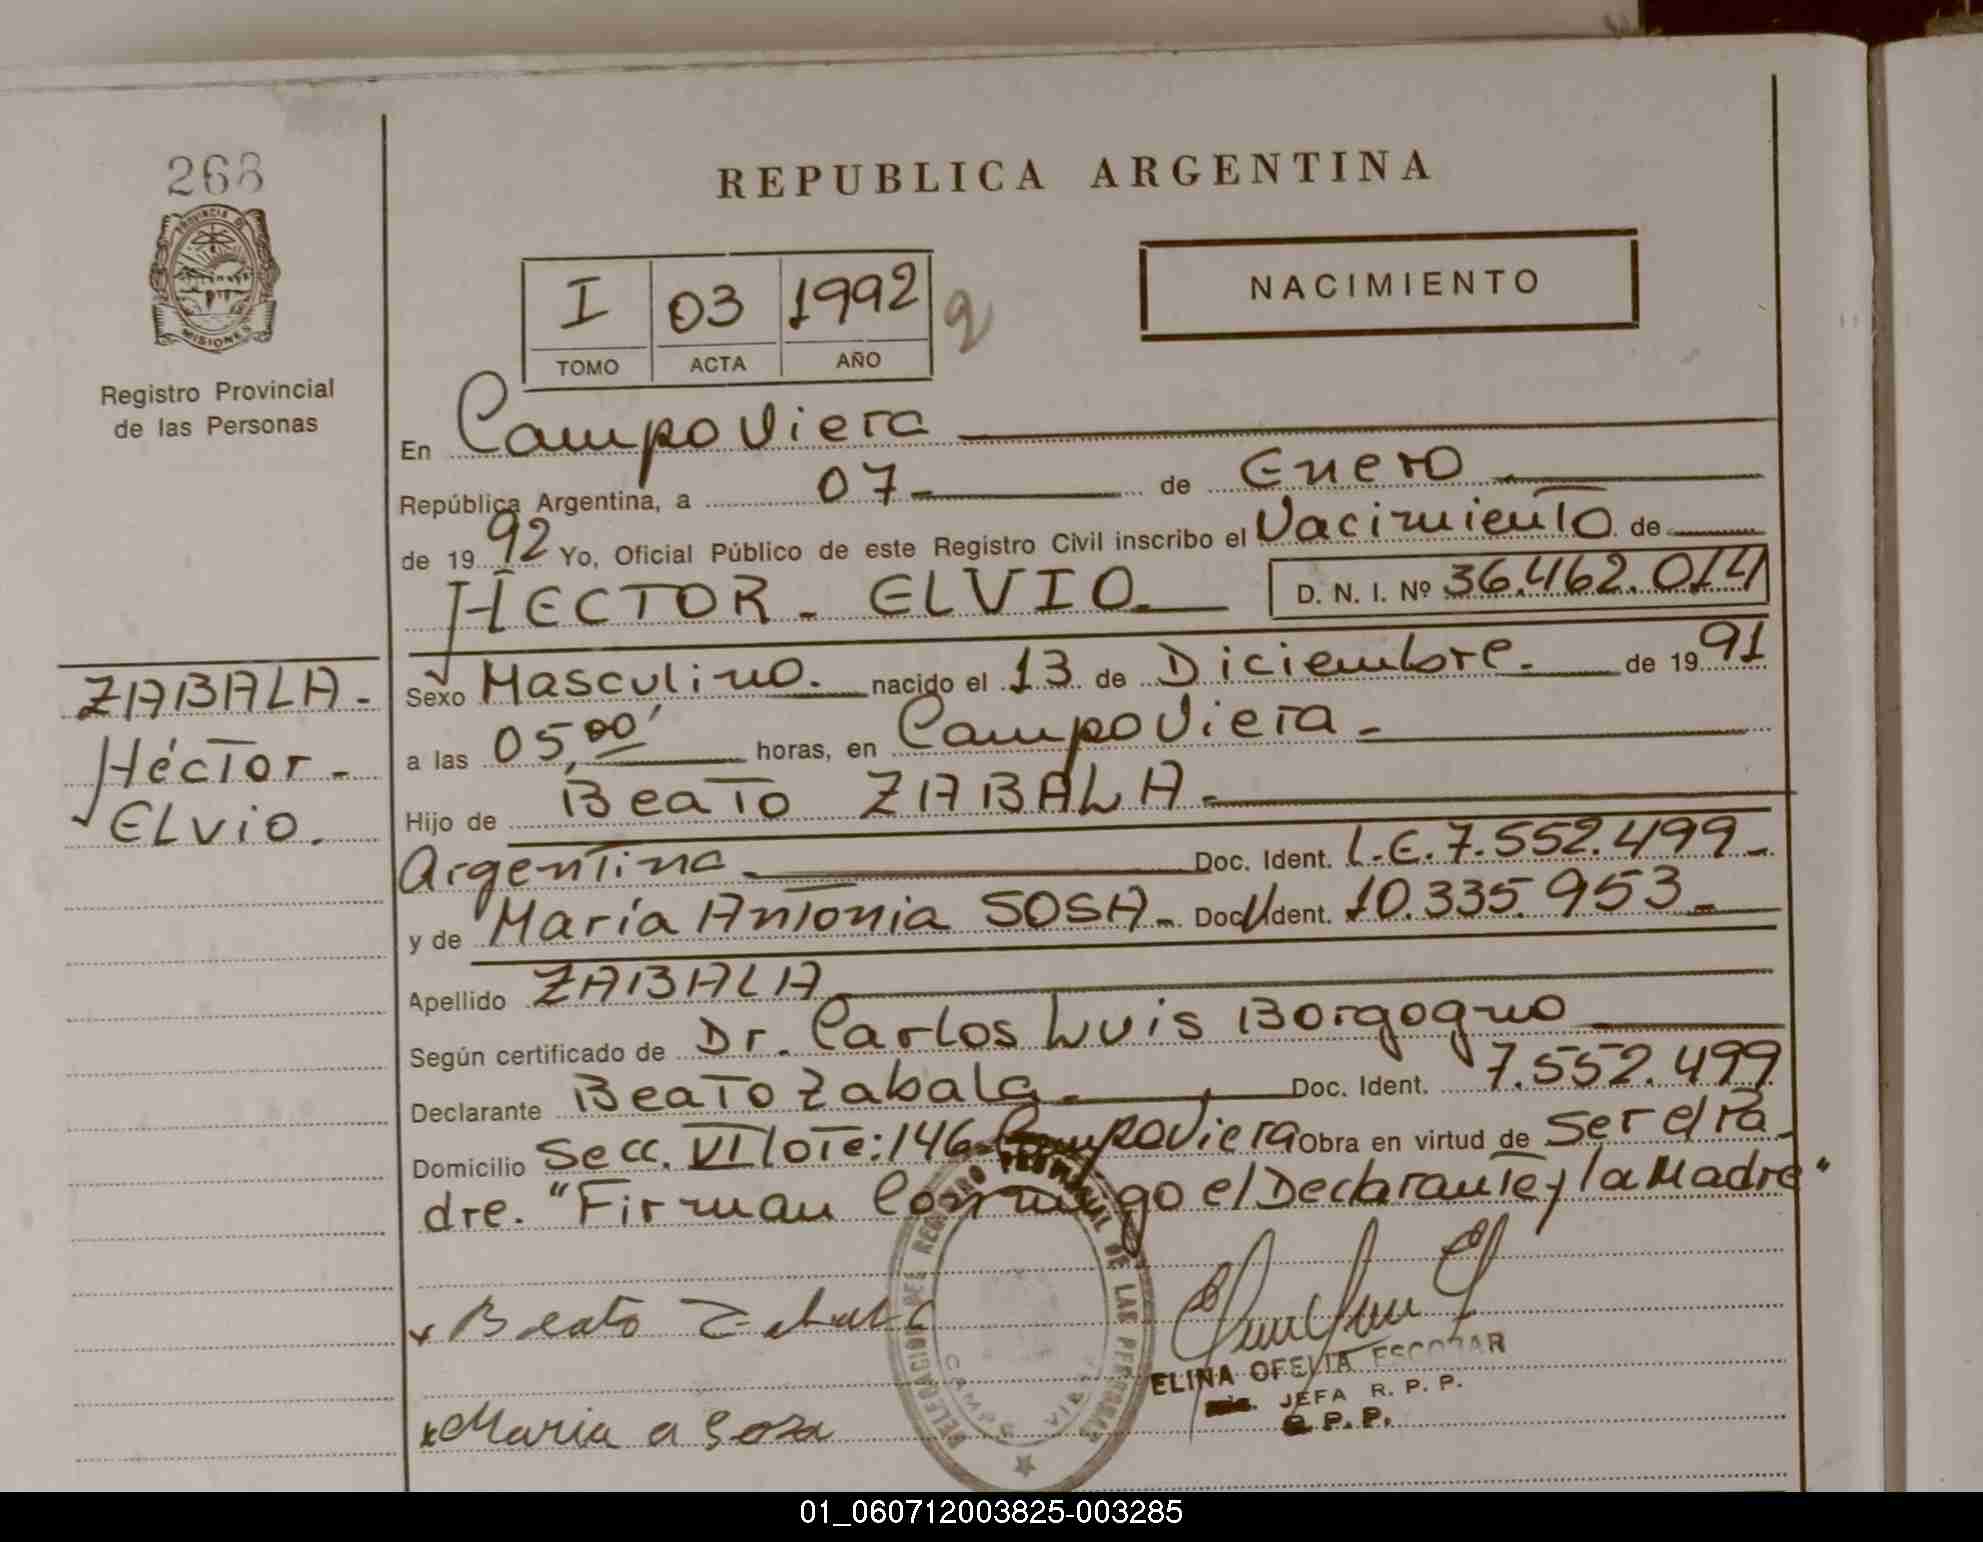 268
PROVINCIA DE
MISIONES
Registro Provincial
de las Personas
REPUBLICA ARGENTINA
NACIMIENTO
I 03 1992 2
TOMO ACTA AÑO
En Campo Viera
República Argentina, a 07 de Enero
de 19 92 Yo, Oficial Público de este Registro Civil inscribo el Nacimiento de
HECTOR - ELVIO. D. N. I. Nº 36.462.014
Sexo Masculino. nacido el 13 de Diciembre. de 19 91
a las 05,00' horas, en Campo Viera -
Hijo de Beato ZABALA -
Argentina Doc. Ident. L.E. 7.552.499 -
y de María Antonia SOSA - Doc. Ident. 10.335.953 -
Apellido ZABALA
Según certificado de Dr. Carlos Luis Borgogno
Declarante Beato Zabala - Doc. Ident. 7.552.499
Domicilio Secc. VI lote: 146 Campo Viera Obra en virtud de Ser el Pa-
dre. "Firman Conmigo el Declarante y la Madre"
ZABALA -
Héctor -
ELvio.
x Beato Zabala
x Maria a Sosa
REGISTRO PROVINCIAL DE LAS PERSONAS
CAMPO VIERA
ELINA OFELIA ESCOBAR
JEFA R. P. P.
R. P. P.
01_060712003825-003285